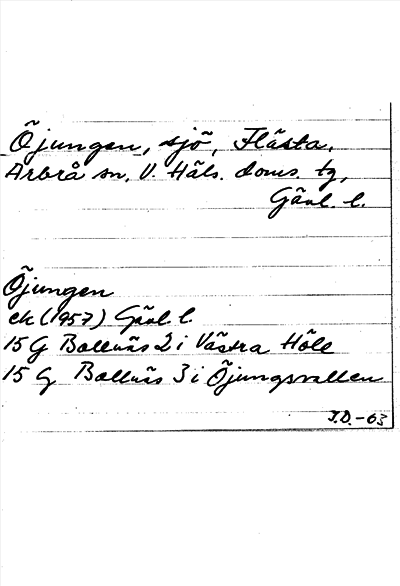 Öjungen, sjö, Flästa,
Arbrå sn, V. Häls. doms. tg,
Gävl. l.
Öjungen
ek (1957) Gävl. l.
15 G Bollnäs 2 i Västra Höle
15 G Bollnäs 3 i Öjungsvallen
J.D. -63